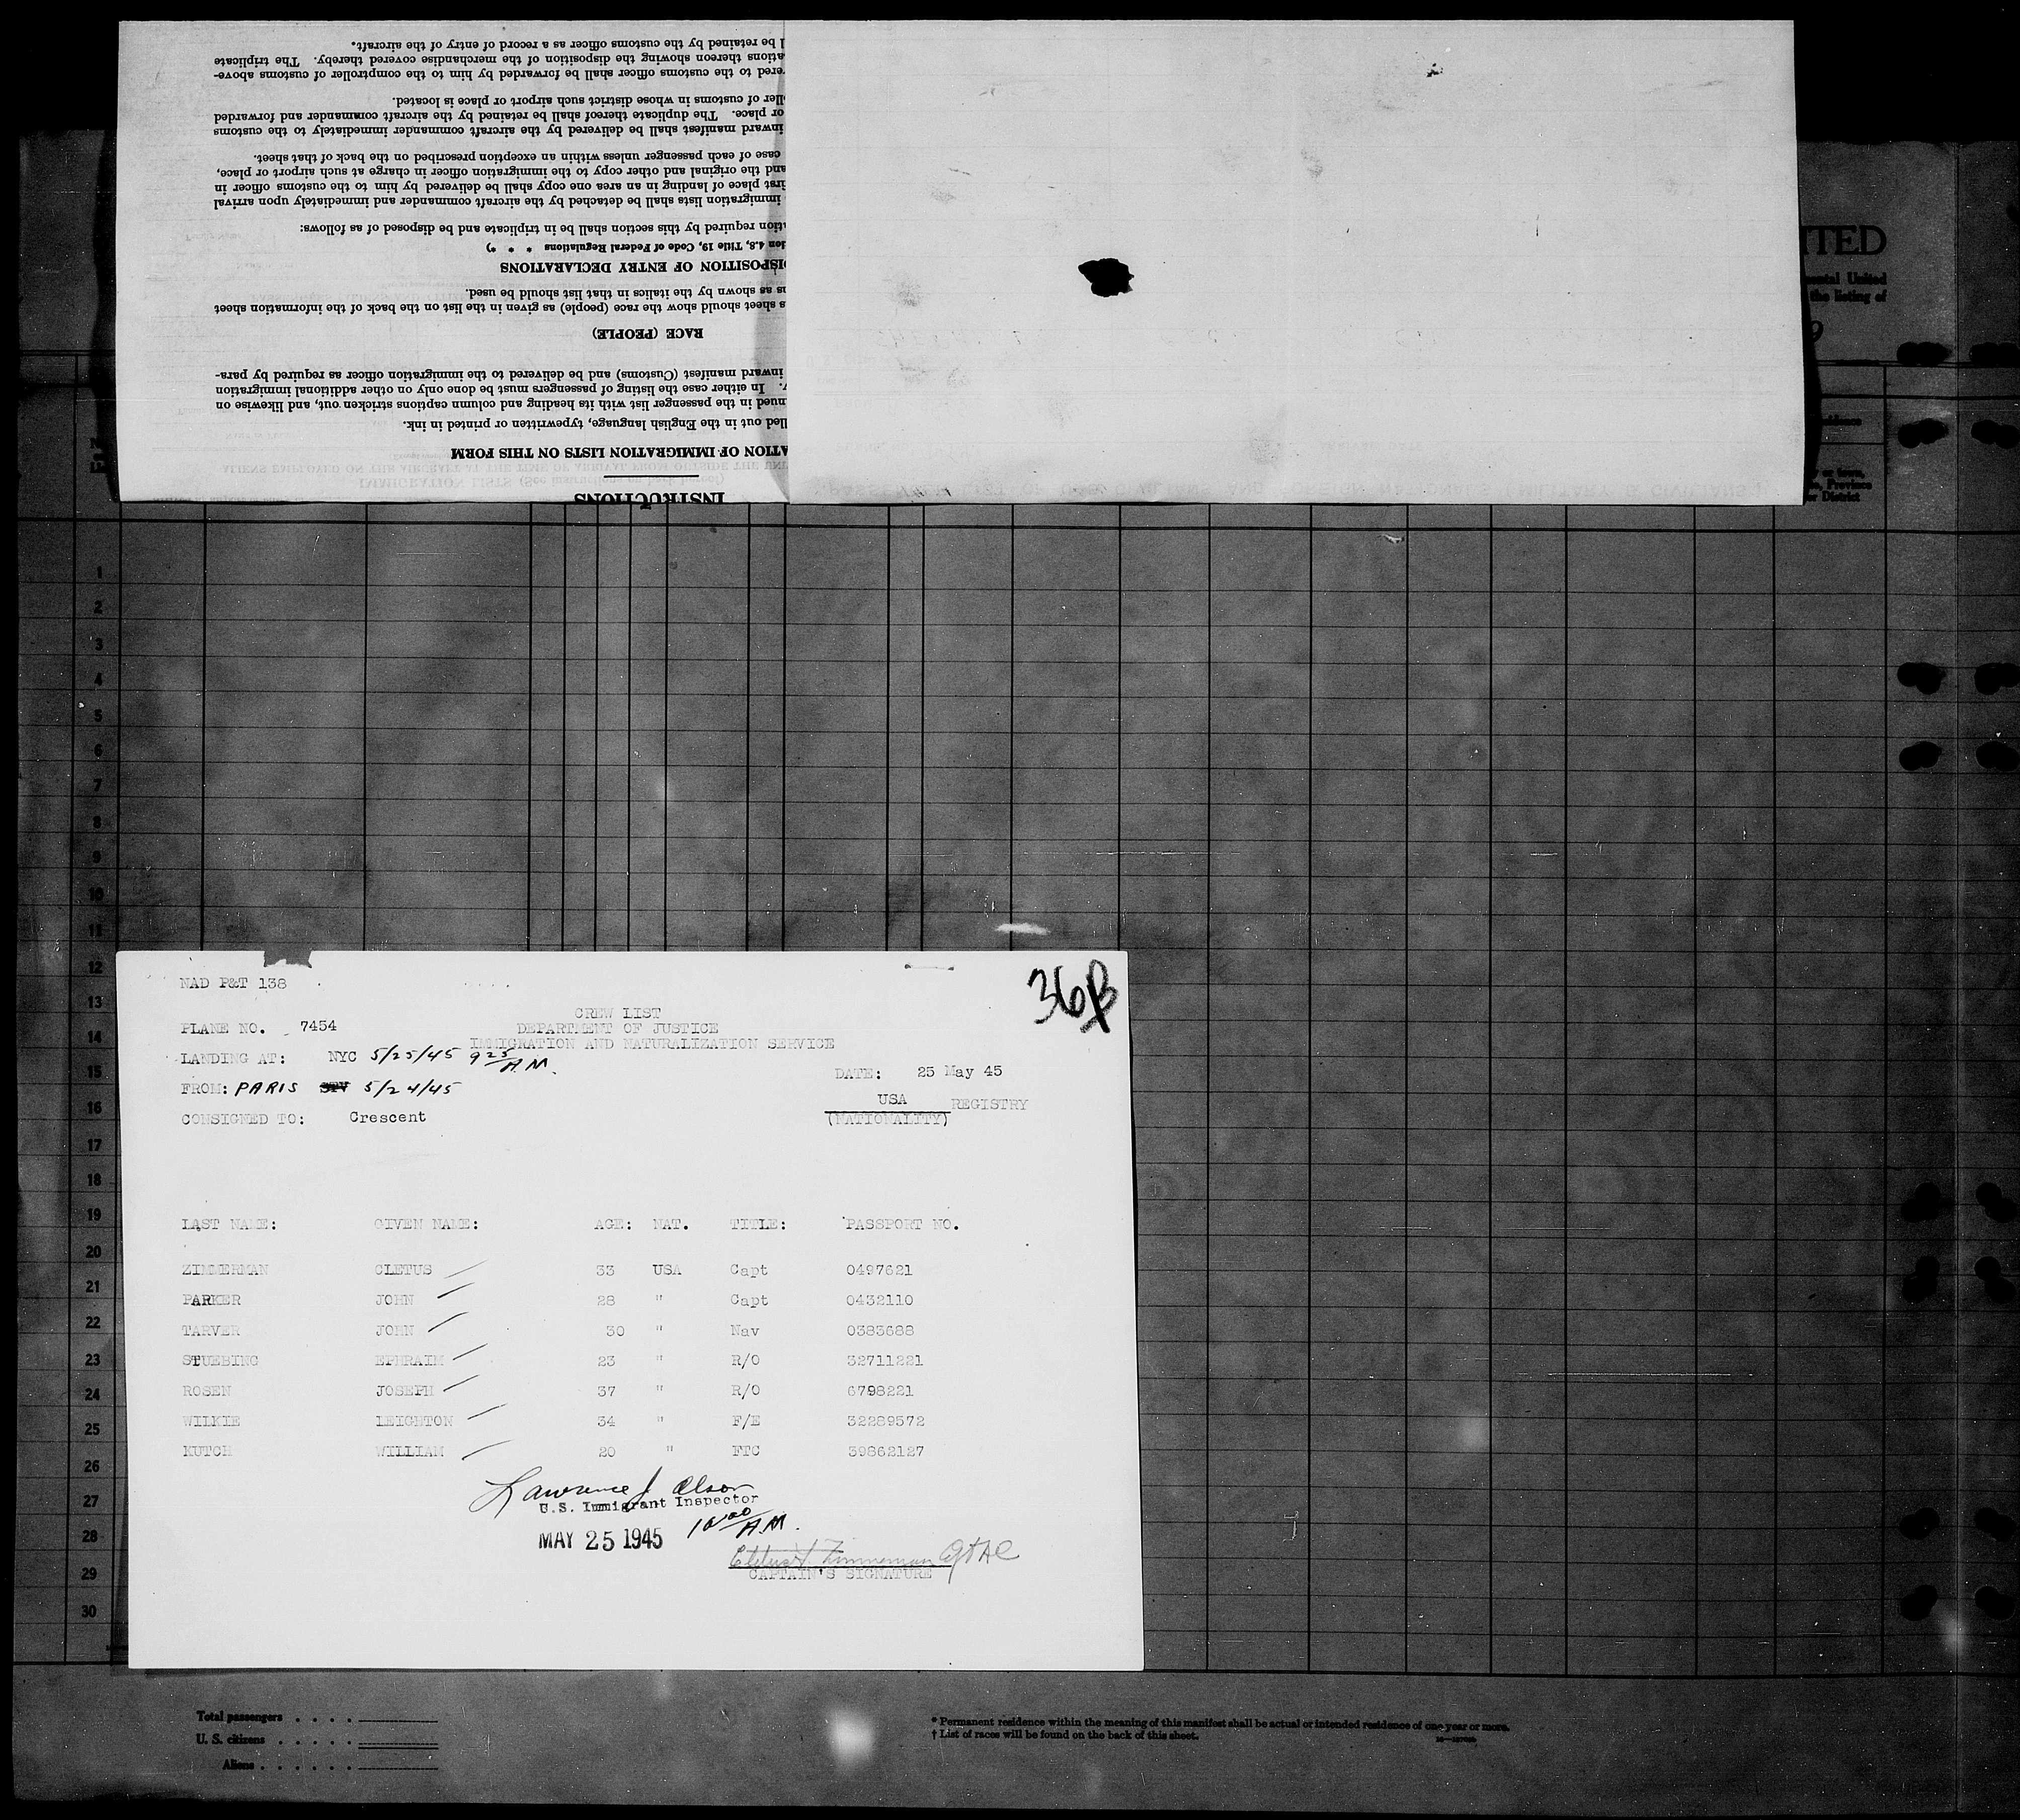 INSTRUCTIONS
ATION OF IMMIGRATION LISTS ON THIS FORM
lled out in the English language, typewritten or printed in ink.
nued in the passenger list with its heading and column captions stricken out, and likewise on
. In either case the listing of passengers must be done only on other additional immigration
inward manifest (Customs) and be delivered to the immigration officer as required by para-
RACE (PEOPLE)
s sheet should show the race (people) as given in the list on the back of the information sheet
ns as shown by the italics in that list should be used.
DISPOSITION OF ENTRY DECLARATIONS
ion 4.8, Title 19, Code of Federal Regulations * * *)
ation required by this section shall be in triplicate and be disposed of as follows:
immigration lists shall be detached by the aircraft commander and immediately upon arrival
irst place of landing in an area one copy shall be delivered by him to the customs officer in
and the original and other copy to the immigration officer in charge at such airport or place,
case of each passenger unless within an exception prescribed on the back of that sheet.
inward manifest shall be delivered by the aircraft commander immediately to the customs
or place. The duplicate thereof shall be retained by the aircraft commander and forwarded
ller of customs in whose district such airport or place is located.
ered to the customs officer shall be forwarded by him to the comptroller of customs above-
ations thereon showing the disposition of the merchandise covered thereby. The triplicate
l be retained by the customs officer as a record of entry of the aircraft.
ITED
ental United
the listing of
or town,
Province
or District
1
2
3
4
5
6
7
8
9
10
11
12
13
14
15
16
17
18
19
20
21
22
23
24
25
26
27
28
29
30
NAD P&T 138
36B
CREW LIST
PLANE NO. 7454 DEPARTMENT OF JUSTICE
IMMIGRATION AND NATURALIZATION SERVICE
LANDING AT: NYC 5/25/45 9 25 A.M.
DATE: 25 May 45
FROM: PARIS STV 5/24/45
USA REGISTRY
CONSIGNED TO: Crescent (NATIONALITY)
LAST NAME: GIVEN NAME: AGE: NAT. TITLE: PASSPORT NO.
ZIMMERMAN CLETUS 33 USA Capt 0497621
PARKER JOHN 28 " Capt 0432110
TARVER JOHN 30 " Nav 0383688
STUEBING EPHRAIM 23 " R/O 32711221
ROSEN JOSEPH 37 " R/O 6798221
WILKIE LEIGHTON 34 " F/E 32289572
KUTCH WILLIAM 20 " FTC 39862127
Lawrence J. Olson
U.S. Immigrant Inspector
MAY 25 1945 10 00 A.M.
CAPTAIN'S SIGNATURE
Total passengers
U. S. citizens
Aliens
* Permanent residence within the meaning of this manifest shall be actual or intended residence of one year or more.
† List of races will be found on the back of this sheet.